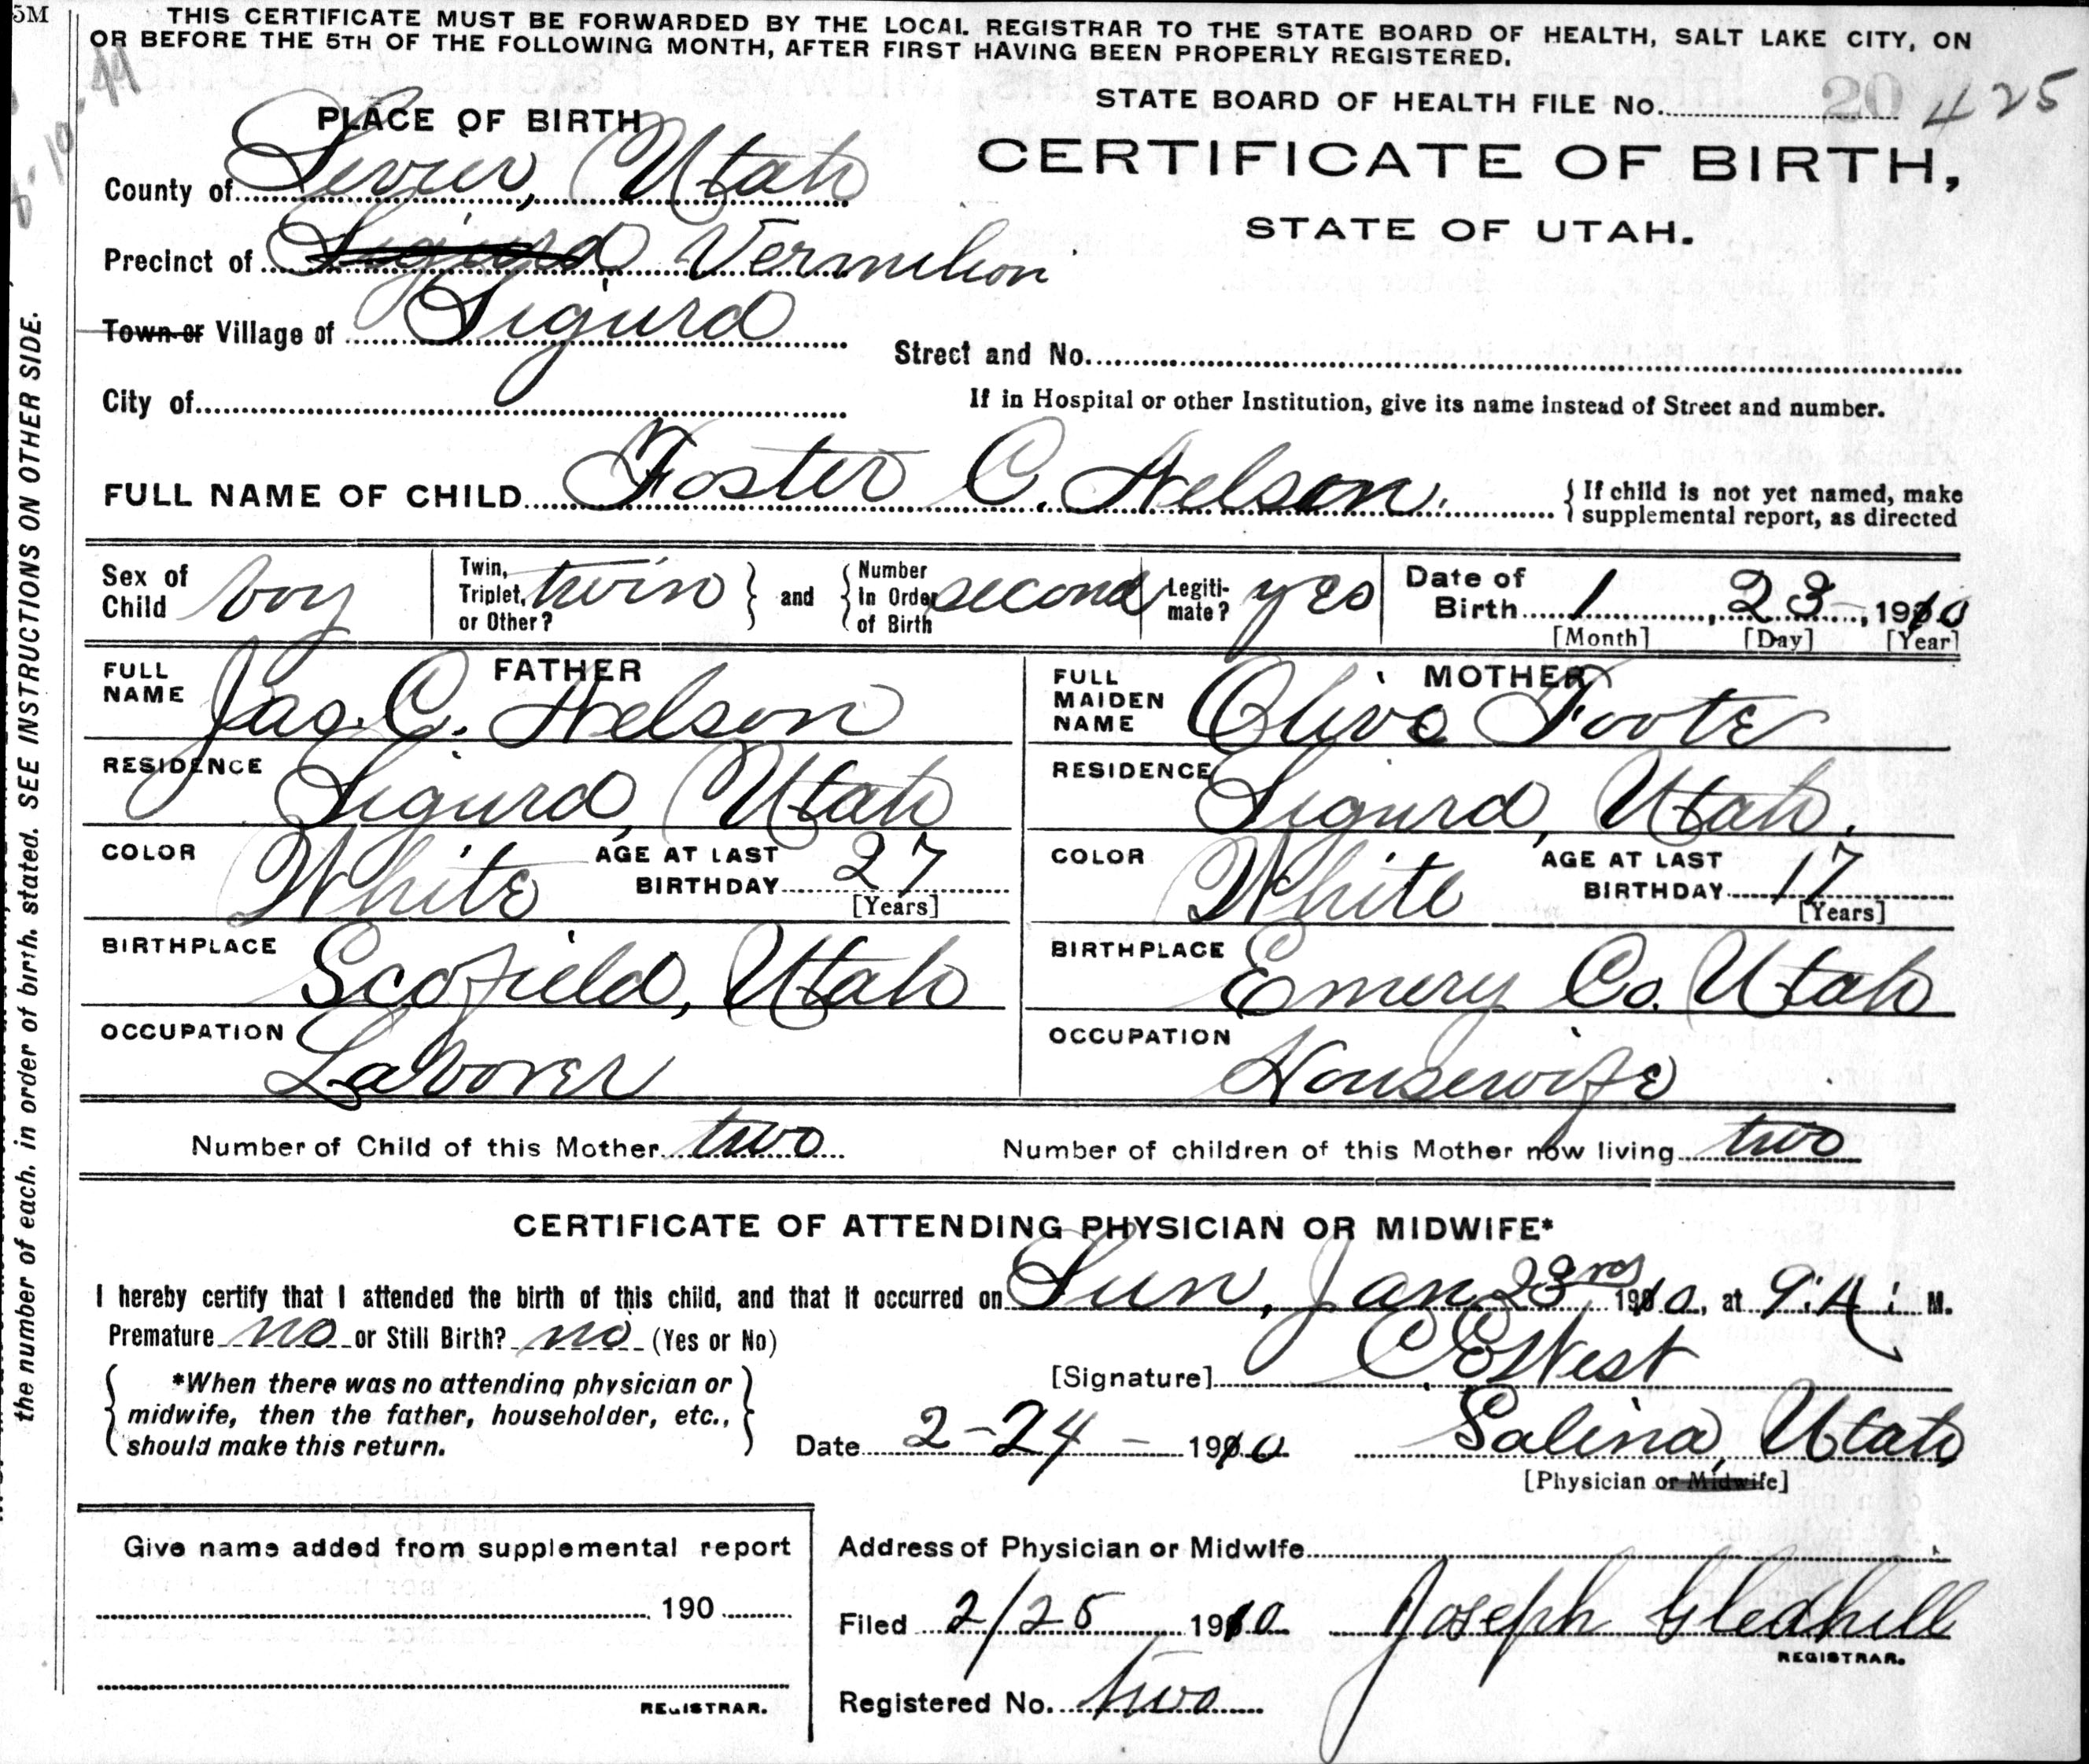 5M
THIS CERTIFICATE MUST BE FORWARDED BY THE LOCAL REGISTRAR TO THE STATE BOARD OF HEALTH, SALT LAKE CITY, ON
OR BEFORE THE 5TH OF THE FOLLOWING MONTH, AFTER FIRST HAVING BEEN PROPERLY REGISTERED.
STATE BOARD OF HEALTH FILE No. 20 425
PLACE OF BIRTH
CERTIFICATE OF BIRTH,
STATE OF UTAH.
County of Sevier, Utah
Precinct of Sigurd Vermilion
Town or Village of Sigurd
Street and No.
City of
If in Hospital or other Institution, give its name instead of Street and number.
FULL NAME OF CHILD Foster C. Nelson.
{If child is not yet named, make
supplemental report, as directed
Sex of Child boy
Twin, Triplet, or Other? twin } and { Number In Order of Birth second
Legitimate? yes
Date of Birth 1, 23, 1910
[Month] [Day] [Year]
FATHER
FULL NAME Jas. C. Nelson
RESIDENCE Sigurd, Utah
COLOR White AGE AT LAST BIRTHDAY 27
[Years]
BIRTHPLACE Scofield, Utah
OCCUPATION Laborer
MOTHER
FULL MAIDEN NAME Olive Foote
RESIDENCE Sigurd, Utah.
COLOR White AGE AT LAST BIRTHDAY 17
[Years]
BIRTHPLACE Emery Co. Utah
OCCUPATION Housewife
Number of Child of this Mother two
Number of children of this Mother now living two
CERTIFICATE OF ATTENDING PHYSICIAN OR MIDWIFE*
I hereby certify that I attended the birth of this child, and that it occurred on Sun, Jan. 23rd 1910, at 9: A. M.
Premature no or Still Birth? no (Yes or No)
*When there was no attending physician or
midwife, then the father, householder, etc.,
should make this return.
[Signature] C E West
Date 2-24- 1910 Salina, Utah
[Physician or Midwife]
Give name added from supplemental report
190
REGISTRAR.
Address of Physician or Midwife
Filed 2/25 1910 Joseph Gledhill
REGISTRAR.
Registered No. two
the number of each, in order of birth, stated. SEE INSTRUCTIONS ON OTHER SIDE.